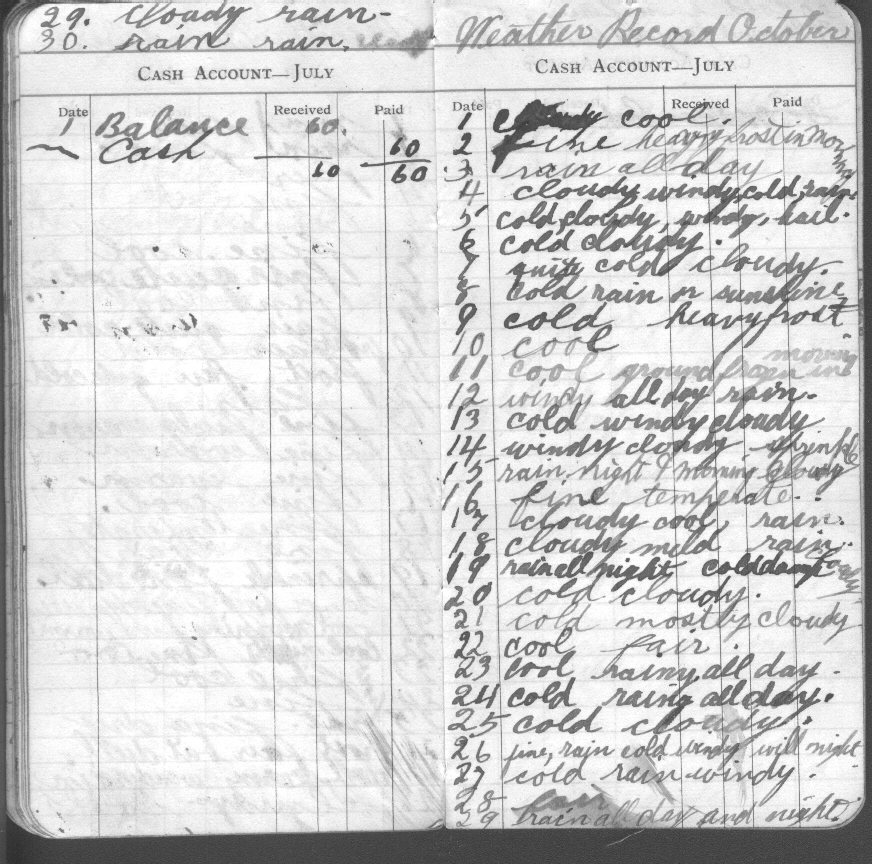 29. cloudy rain-
30. rain rain.
CASH ACCOUNT—JULY
Date Received Paid
1 Balance 60.
Cash 60
60 60
Weather Record October
CASH ACCOUNT—JULY
Date Received Paid
1 cloudy cool.
2 fine heavy frost in morning
3 rain all day
4 cloudy, windy, cold, rain.
5 cold, cloudy, windy, hail.
6 cold cloudy.
7 quite cold cloudy.
8 cold rain n sunshine
9 cold heavy frost
10 cool
11 cool ground frozen in morning
12 windy all day rain.
13 cold windy cloudy
14 windy cloudy sprinkle
15 rain night & morning cloudy
16 fine temperate.
17 cloudy cool, rain.
18 cloudy mild rain.
19 rain all night cold damp cloudy
20 cold cloudy.
21 cold mostly cloudy
22 cool fair.
23 cool rainy all day.
24 cold rainy all day.
25 cold cloudy.
26 fine, rain cold windy night
27 cold rain windy.
28 fair
29 rain all day and night.